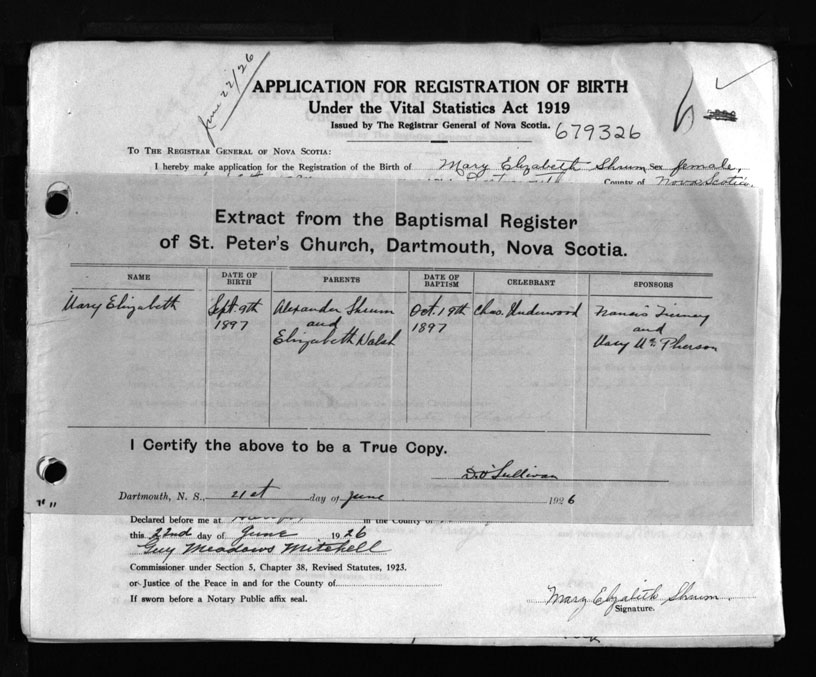 June 22/26
APPLICATION FOR REGISTRATION OF BIRTH
Under the Vital Statistics Act 1919
Issued by The Registrar General of Nova Scotia.
679326
TO THE REGISTRAR GENERAL OF NOVA SCOTIA:
I hereby make application for the Registration of the Birth of Mary Elizabeth Shrum Sex female,
County of Nova Scotia.
Extract from the Baptismal Register
of St. Peter's Church, Dartmouth, Nova Scotia.
NAME DATE OF BIRTH PARENTS DATE OF BAPTISM CELEBRANT SPONSORS
Mary Elizabeth Sept. 9th 1897 Alexander Shrum and Elizabeth Walsh Oct. 19th 1897 Chas. Underwood Francis Finney and Mary Mc Pherson
I Certify the above to be a True Copy.
D. O'Sullivan
Dartmouth, N. S., 21st day of June 1926
Declared before me at in the County of
this 22nd day of June 1926
Guy Meadows Mitchell
Commissioner under Section 5, Chapter 38, Revised Statutes, 1923.
or Justice of the Peace in and for the County of
If sworn before a Notary Public affix seal.
Mary Elzabith Shrum
Signature.